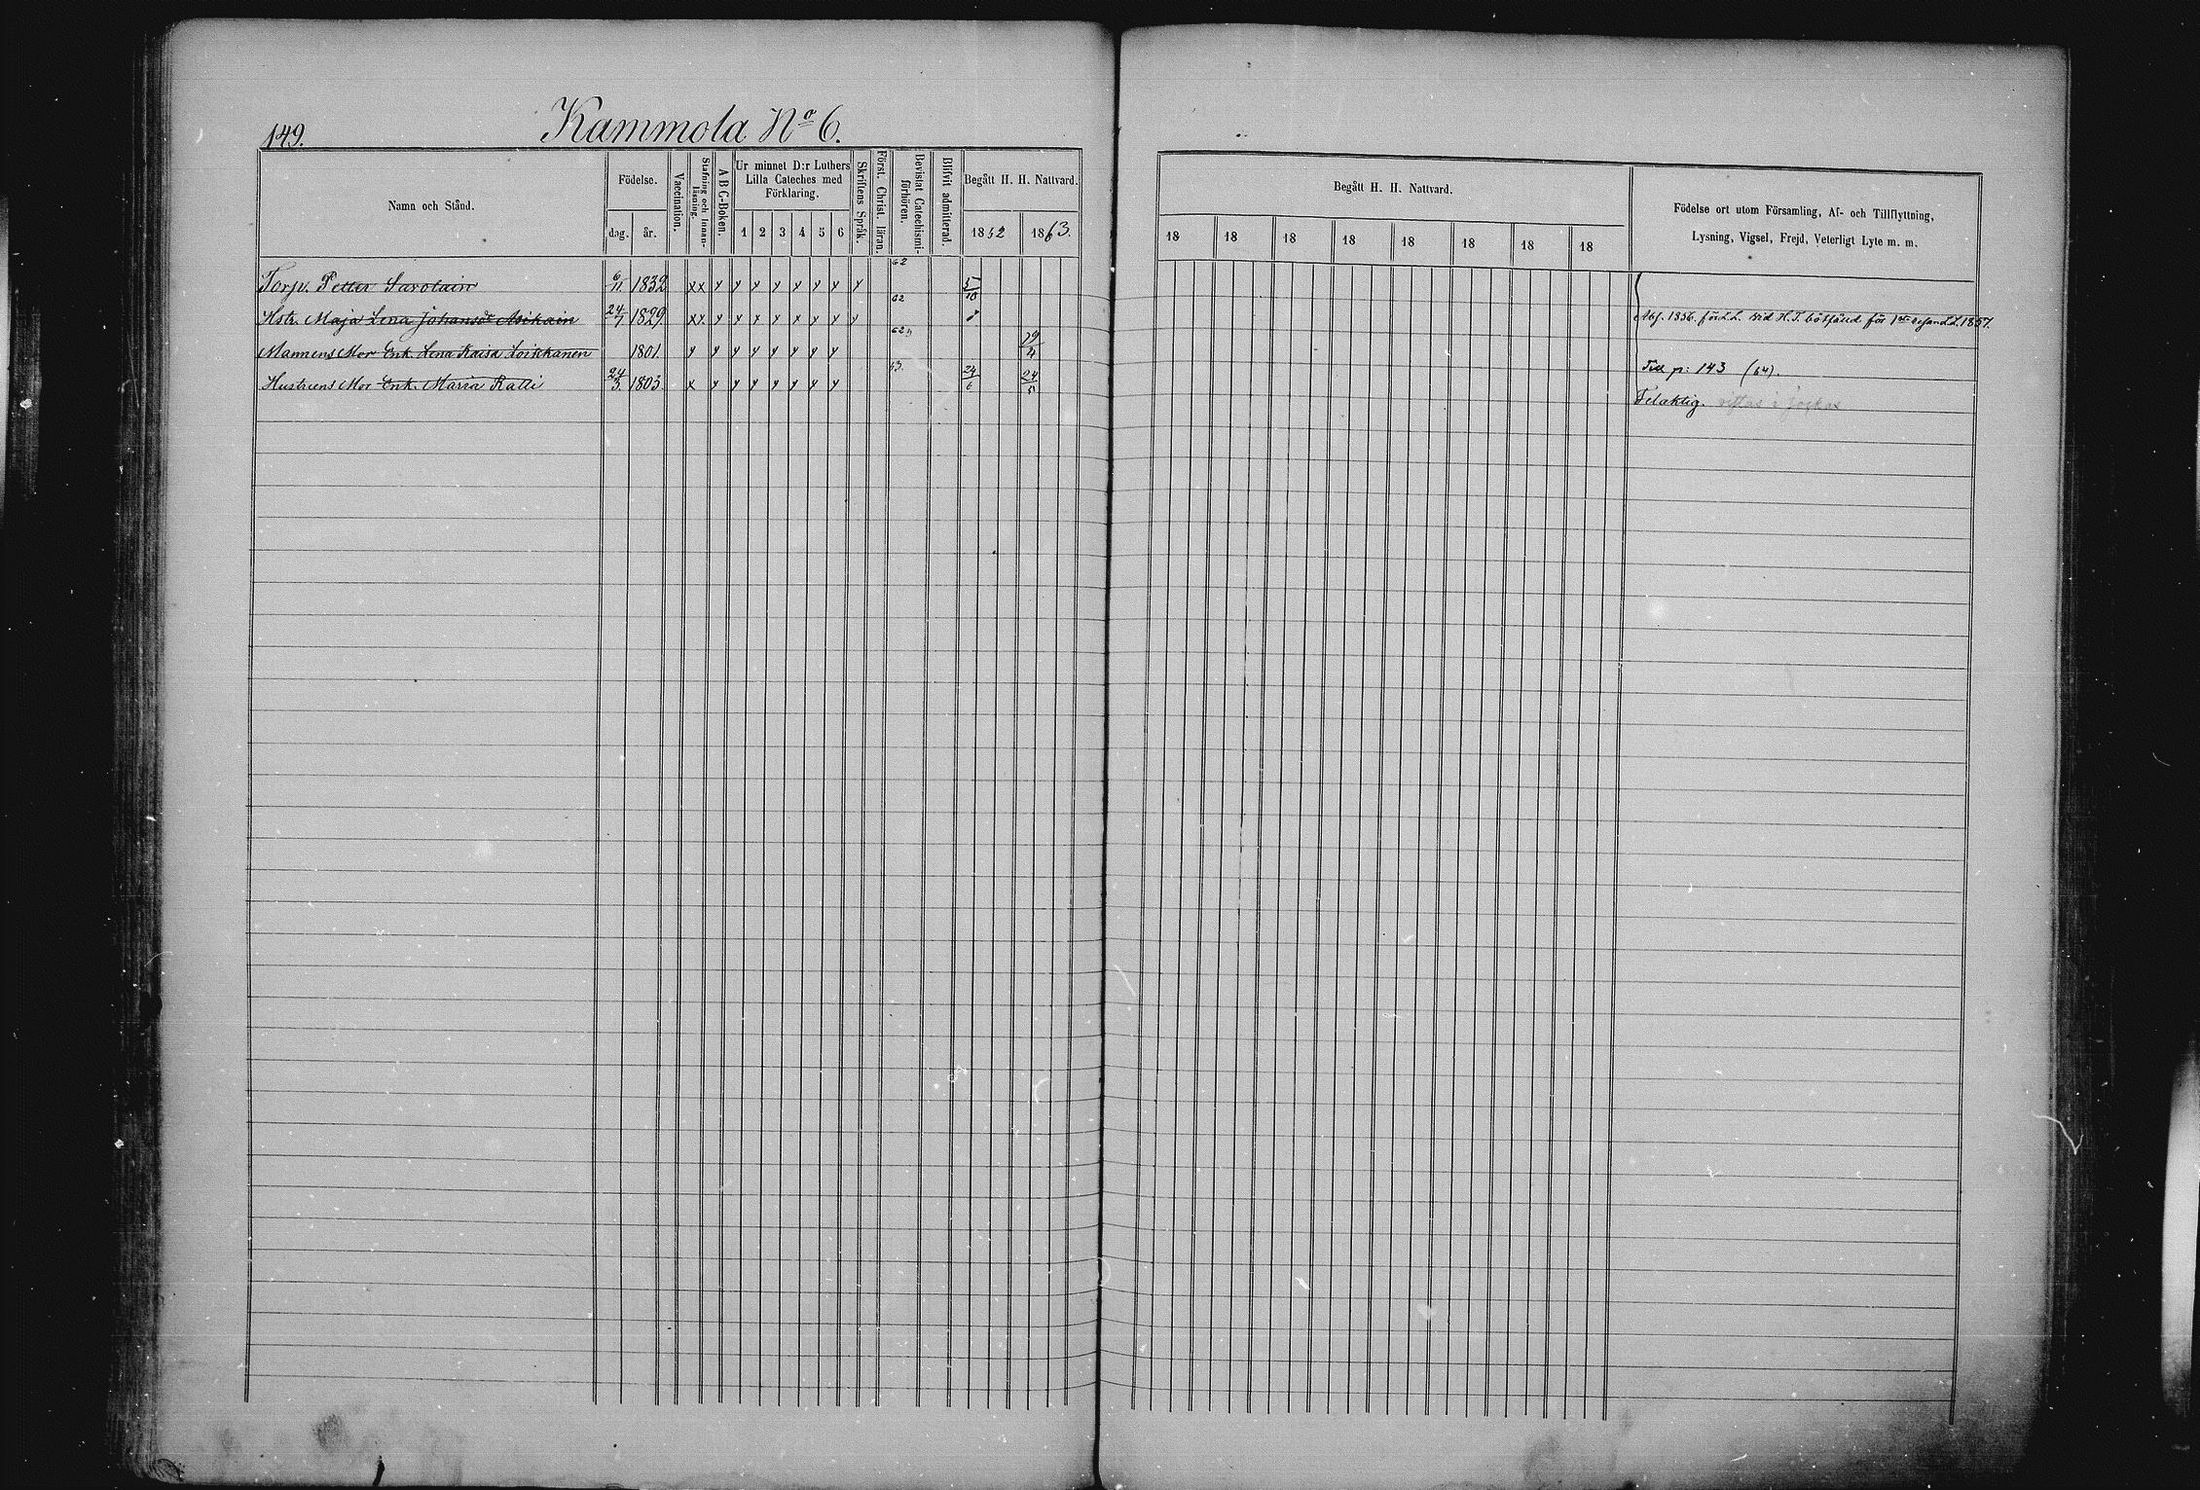 149.
Kammola No 6.
Namn och Stånd.
Födelse.
dag.
år.
Vaccination.
Stafning och Innan-
läsning.
A B C-Boken.
Ur minnet D:r Luthers
Lilla Cateches med
Förklaring.
1 2 3 4 5 6
Skriftens Språk.
Först. Christ. läran.
Bevislat Catechismi-
förhören.
Blifvit admitterad.
Begått H. H. Nattvard.
1862
1863.
Begått H. H. Nattvard.
18 18 18 18 18 18 18 18
Födelse ort utom Församling, Af- och Tillflyttning,
Lysning, Vigsel, Frejd, Veterligt Lyte m. m.
Torp. Petter Savolain 6/11 1832 x x y y y y y y y y 62 5/10
Hstr. Maja Lena Johansdr Asikain 24/7 1829 x x y y y y x y y y 62
1856 för L. L. vid H. T. bötfäld för 1857.
Mannens Mor Enk. Lena Kaisa Loikkanen 1801. y y y y y y y y 62 19/4
Hustruens Mor Enk. Maria Ralli 24/3 1803 x y y y y y y y 63. 24/6 24/5
Till p: 143 (64).
Felaktig.